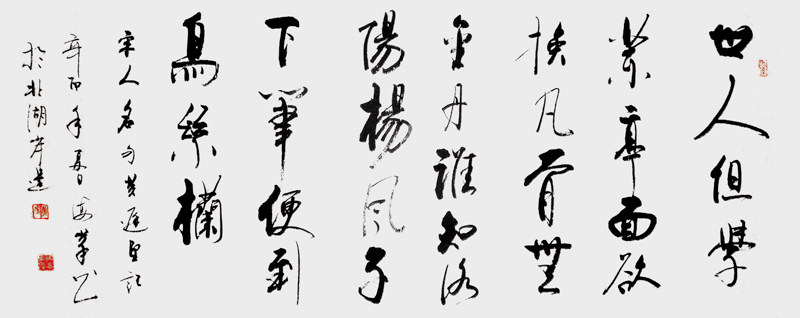 世人但學
蘭亭面欲
換凡骨無
金丹誰知洛
陽楊風子
下筆便到
烏絲欄
宋人名句黃庭堅記
年夏
於北湖岸邊